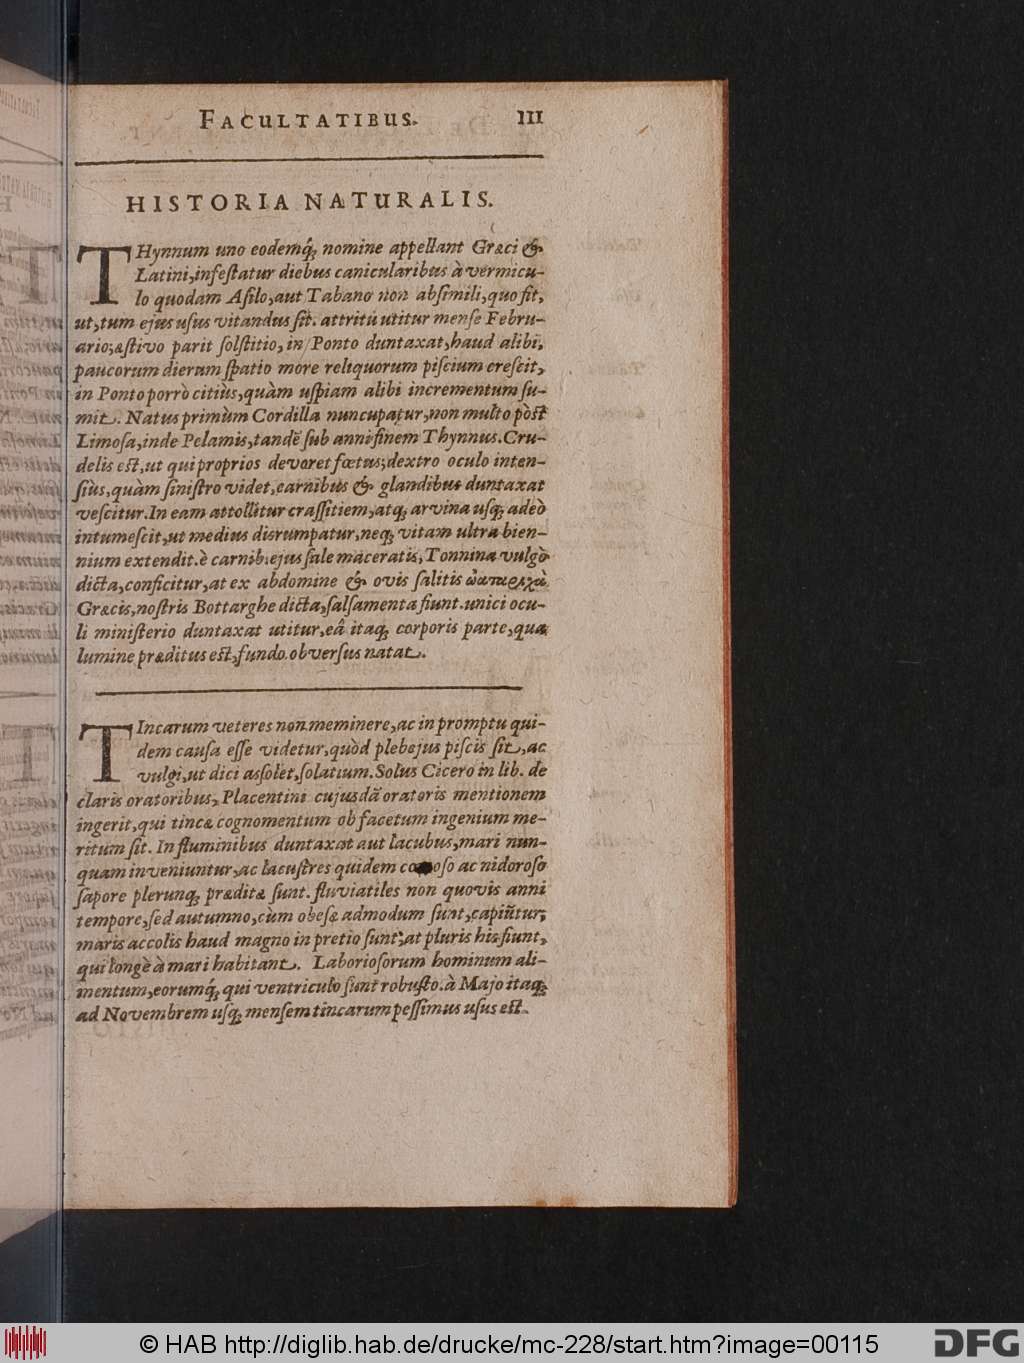 FACULTATIBUS. 111
HISTORIA NATURALIS.
THynnum uno eodemq́; nomine appellant Græci &
Latini, infeſtatur diebus canicularibus à vermicu-
lo quodam Aſilo, aut Tabano non abſimili, quo fit,
ut, tum ejus uſus vitandus ſit. attritu utitur menſe Febru-
ario; æſtivo parit ſolſtitio, in Ponto duntaxat, haud alibi,
paucorum dierum ſpatio more reliquorum piſcium creſcit,
in Ponto porrò citiùs, quàm uſpiam alibi incrementum ſu-
mit. Natus primùm Cordilla nuncupatur, non multo pòſt
Limoſa, inde Pelamis, tandẽ ſub anni finem Thynnus. Cru-
delis eſt, ut qui proprios devoret fœtus; dextro oculo inten-
ſiùs, quàm ſiniſtro videt, carnibus & glandibus duntaxat
veſcitur. In eam attollitur craſſitiem, atq; arvina uſq; adeò
intumeſcit, ut medius diſrumpatur, neq; vitam ultra bien-
nium extendit. è carnib. ejus ſale maceratis, Tonnina vulgò
dicta, conficitur, at ex abdomine & ovis ſalitis ὠαταριχὰ
Græcis, noſtris Bottarghe dicta, ſalſamenta fiunt. unici ocu-
li miniſterio duntaxat utitur, eâ itaq; corporis parte, qua
lumine præditus eſt, fundo obverſus natat.
TIncarum veteres non meminere, ac in promptu qui-
dem cauſa eſſe videtur, quòd plebejus piſcis ſit, ac
vulgi, ut dici aſſolet, ſolatium. Solus Cicero in lib. de
claris oratoribus, Placentini cujusdã oratoris mentionem
ingerit, qui tincæ cognomentum ob facetum ingenium me-
ritum ſit. In fluminibus duntaxat aut lacubus, mari nun-
quam inveniuntur, ac lacuſtres quidem ac nidoroſo
ſapore plerunq; præditæ ſunt. fluviatiles non quovis anni
tempore, ſed autumno, cùm obeſæ admodum ſunt, capiũtur;
maris accolis haud magno in pretio ſunt; at pluris his fiunt,
qui longè à mari habitant. Laborioſorum hominum ali-
mentum, eorumq́; qui ventriculo ſunt robuſto. à Majo itaq;
ad Novembrem uſq; menſem tincarum peſſimus uſus eſt.
© HAB http://diglib.hab.de/drucke/mc-228/start.htm?image=00115
DFG